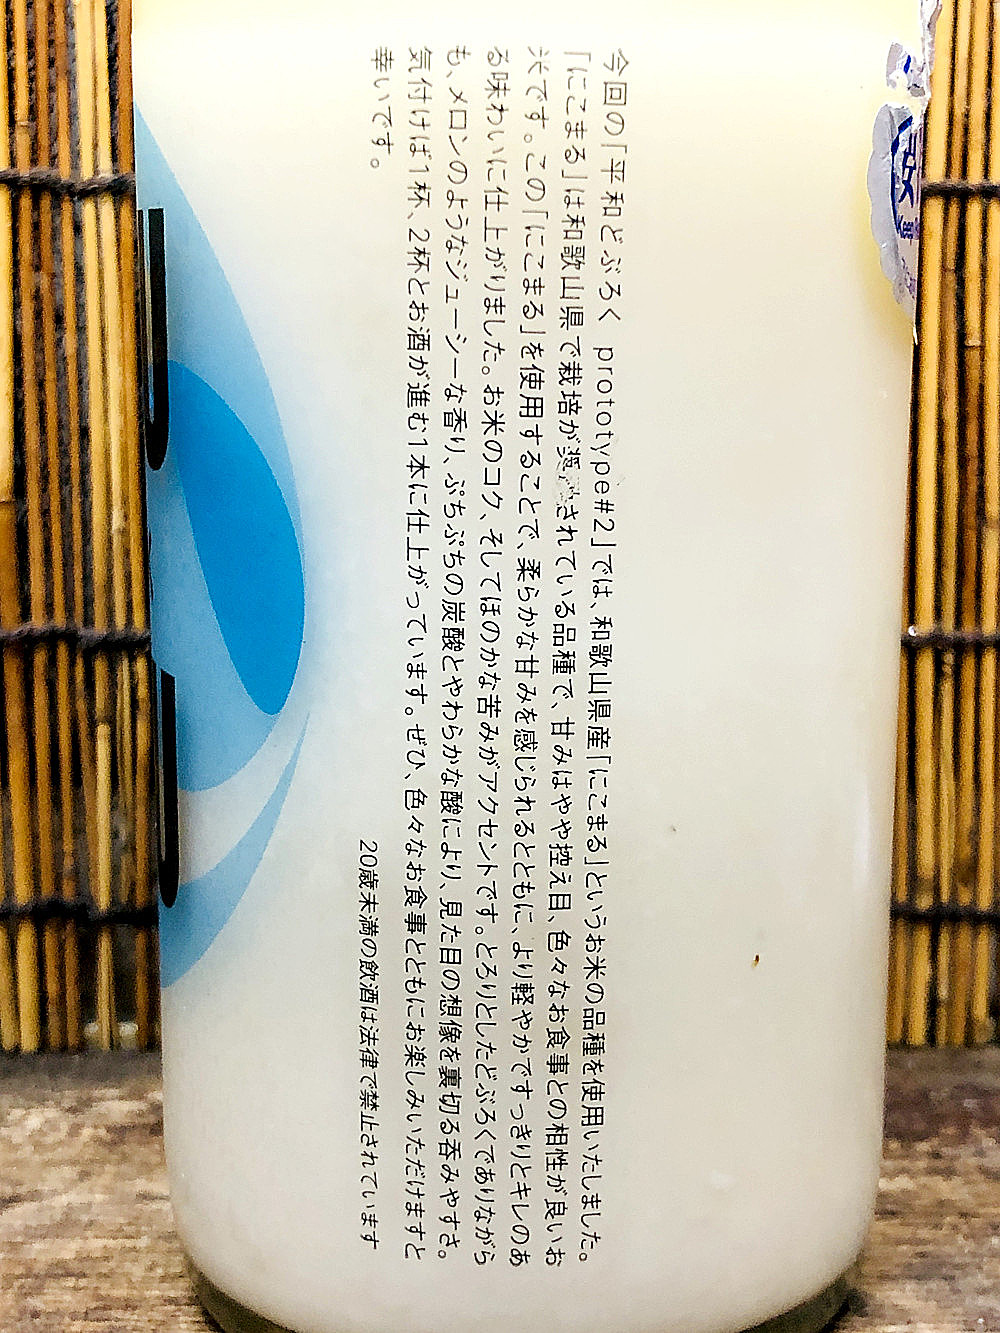 今回の「平和どぶろく prototype#2」では、和歌山県産「にこまる」というお米の品種を使用いたしました。
「にこまる」は和歌山県で栽培が奨されている品種で、甘みはやや控え目、色々なお食事との相性が良いお
米です。この「にこまる」を使用することで、柔らかな甘みを感じられるとともに、より軽やかですっきりとキレのあ
る味わいに仕上がりました。お米のコク、そしてほのかな苦みがアクセントです。とろりとしたどぶろくでありながら
も、メロンのようなジューシーな香り、ぷちぷちの炭酸とやわらかな酸により、見た目の想像を裏切る呑みやすさ。
気付けば1杯、2杯とお酒が進む1本に仕上がっています。ぜひ、色々なお食事とともにお楽しみいただけますと
幸いです。
20歳未満の飲酒は法律で禁止されています